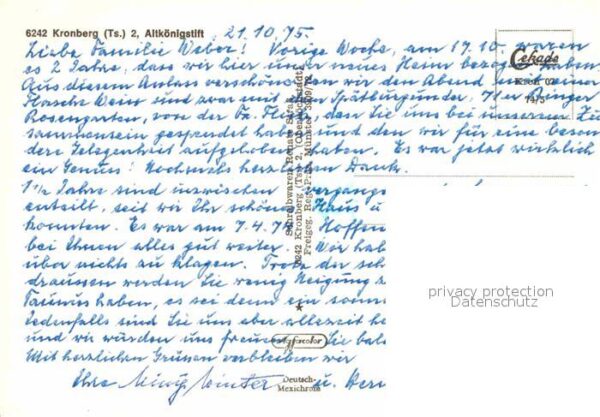 6242 Kronberg (Ts.) 2, Altkönigstift
21.10.75.
Liebe Familie Weber! Vorige Woche, am 17.10. waren
es 2 Jahre, dass wir hier unser neues Heim bezogen haben.
Aus diesem Anlass verschönten wir den Abend mit einer
Flasche Wein und zwar mit Spätburgunder, 71er Binger
Rosengarten, von der Sie uns bei unserem
gespendet haben und den wir für eine beson
dere Gelegenheit aufgehoben haben. Es war jetzt wirklich
ein Genuss! Nochmals herzlichen Dank.
1½ Jahre sind inzwischen vergangen
enteilt, seit wir Ihr schönes Haus u
konnten. Es war am 7.4.74. Hoffen
bei Ihnen alles gut weiter. Wir hab
über nichts zu klagen. Trotz der sch
draussen werden Sie wenig Neigung z
Taunus haben, es sei denn ein sonn
Jedenfalls sind Sie uns aber allezeit he
und wir würden uns freuen Sie bal
Mit herzlichen Grüssen verbleiben wir
Ihre Winter u.
Schreibwaren Renate
6242 Kronberg (Ts.) 2, (Oberhöchstadt)
Freigeg. Reg.-Präs. Münster
Cekade
agfacolor
Deutsch-
Mexichrom
privacy protection
Datenschutz